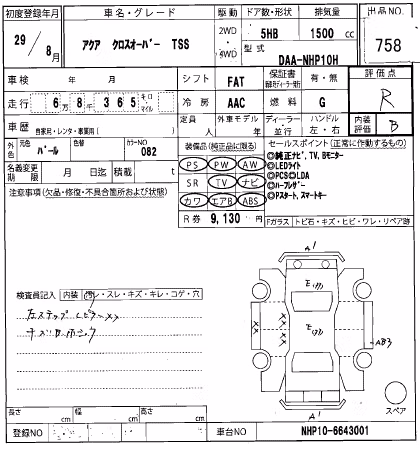 初度登録年月 車名・グレード 駆動 ドア数・形状 排気量 出品NO.
29/8月 アクア クロスオーバー TSS 2WD・4WD 5HB 1500cc 758
型式 DAA-NHP10H
車検 年 月 シフト FAT 保証書 有・無 評価点
走行 6万8千365キロ・マイル 冷房 AAC 燃料 G R
車歴 自家用・レンタ・事業用( ) 定員 人 外車モデル 年 ディーラー・並行 ハンドル 左・右 内装評価 B
外色 元色 パール 色替 カラーNO 082
名義変更期限 月 日迄 積載 t
注意事項(欠品・修復・不具合箇所および状態)
装備品(純正品に限る)
PS PW AW
SR TV ナビ
カワ エアB ABS
R券 9,130円
セールスポイント(正常に作動するもの)
◎純正ナビ,TV,Bモニター
◎LEDライト
◎PCS◎LDA
◎ハーフレザー
◎Pスタート,スマートキー
Fガラス トビ石・キズ・ヒビ・ワレ・リペア跡
検査員記入 内装 汚・スレ・キズ・キレ・コゲ・穴
A1
Eｲｸﾂ
Eｲｸﾂ
×
×
×
AB3
A1
スペア
長さ cm 幅 cm 高さ cm
登録NO 車台NO NHP10-6643001